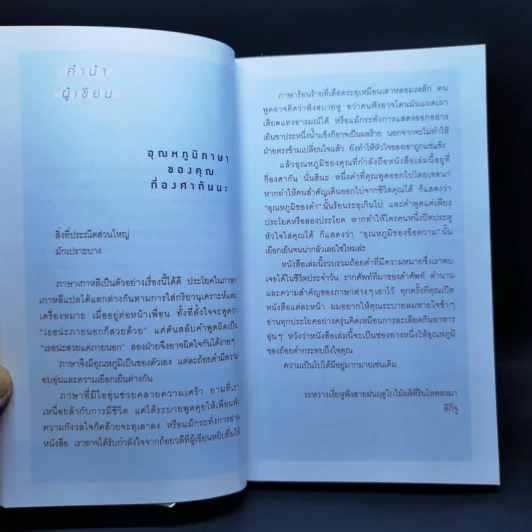 คำนำ
ผู้เขียน
อุณหภูมิภาษา
ของคุณ
กี่องศากันนะ
สิ่งที่ประณีตส่วนใหญ่
มักเปราะบาง
ภาษาเกาหลีเป็นตัวอย่างเรื่องนี้ได้ดี ประโยคในภาษา
เกาหลีแปลได้แตกต่างกันตามการใส่กริยานุเคราะห์และ
เครื่องหมาย เมื่ออยู่ต่อหน้าเพื่อน ทั้งที่ตั้งใจจะพูดว่า
“เธอน่ะภายนอกก็สวยด้วย” แต่ดันสลับคำพูดผิดเป็น
“เธอน่ะสวยแต่ภายนอก” สองฝ่ายจึงอาจผิดใจกันได้ง่ายๆ
ภาษาจึงมีอุณหภูมิเป็นของตัวเอง แต่ละถ้อยคำมีความ
อบอุ่นและความเยือกเย็นต่างกัน
ภาษาที่มีไออุ่นช่วยคลายความเศร้า ยามที่เรา
เหนื่อยล้ากับการมีชีวิต แค่ได้ระบายพูดคุยให้เพื่อนฟัง
ความกังวลใจก็คล้ายจะทุเลาลง หรือแม้กระทั่งการอ่าน
หนังสือ เราอาจได้รับกำลังใจจากถ้อยวลีที่ผู้เขียนหยิบยื่นให้
ภาษาร้อนร้ายที่เดือดระอุเหมือนเตาหลอมเหล็ก คน
พูดอาจคิดว่าฟังสบายหู ทว่าคนฟังอาจโดนมันแผดเผา
เสียดแทงอารมณ์ได้ หรือแม้กระทั่งการแสดงออกอย่าง
เย็นชาประหนึ่งน้ำแข็งก็อาจเป็นผลร้าย นอกจากจะไม่ทำให้
ฝ่ายตรงข้ามเปลี่ยนใจแล้ว ยังทำให้หัวใจของเขาถูกแช่แข็ง
แล้วอุณหภูมิของคุณที่กำลังถือหนังสือเล่มนี้อยู่ที่
กี่องศากัน นั่นสินะ หนึ่งคำที่คุณพูดออกไปโดยเจตนา
หากทำให้คนสำคัญเดินออกไปจากชีวิตคุณได้ ก็แสดงว่า
“อุณหภูมิของคำ” นั้นร้อนระอุเกินไป และคำพูดแค่เพียง
ประโยคหรือสองประโยค หากทำให้ใครคนหนึ่งปิดประตู
หัวใจใส่คุณได้ ก็แสดงว่า “อุณหภูมิของข้อความ” นั้น
เยือกเย็นจนน่ากลัวเลยใช่ไหมล่ะ
หนังสือเล่มนี้รวบรวมถ้อยคำที่มีความหมายซึ่งเราพบ
เจอได้ในชีวิตประจำวัน รากศัพท์ที่มาของคำศัพท์ ตำนาน
และความสำคัญของภาษาต่างๆ เอาไว้ ทุกครั้งที่คุณเปิด
หนังสือแต่ละหน้า ผมอยากให้คุณระบายลมหายใจช้าๆ
อ่านทุกประโยคอย่างครุ่นคิดเหมือนการละเลียดกินอาหาร
อุ่นๆ หวังว่าหนังสือเล่มนี้จะเป็นช่องทางหนึ่งให้อุณหภูมิ
ของถ้อยคำกระทบถึงใจคุณ
ความเป็นไปได้มีอยู่มากมายเช่นเดิม
ระหว่างเงี่ยหูฟังสายฝนฤดูใบไม้ผลิที่รินไหลลงมา
อีกีจู